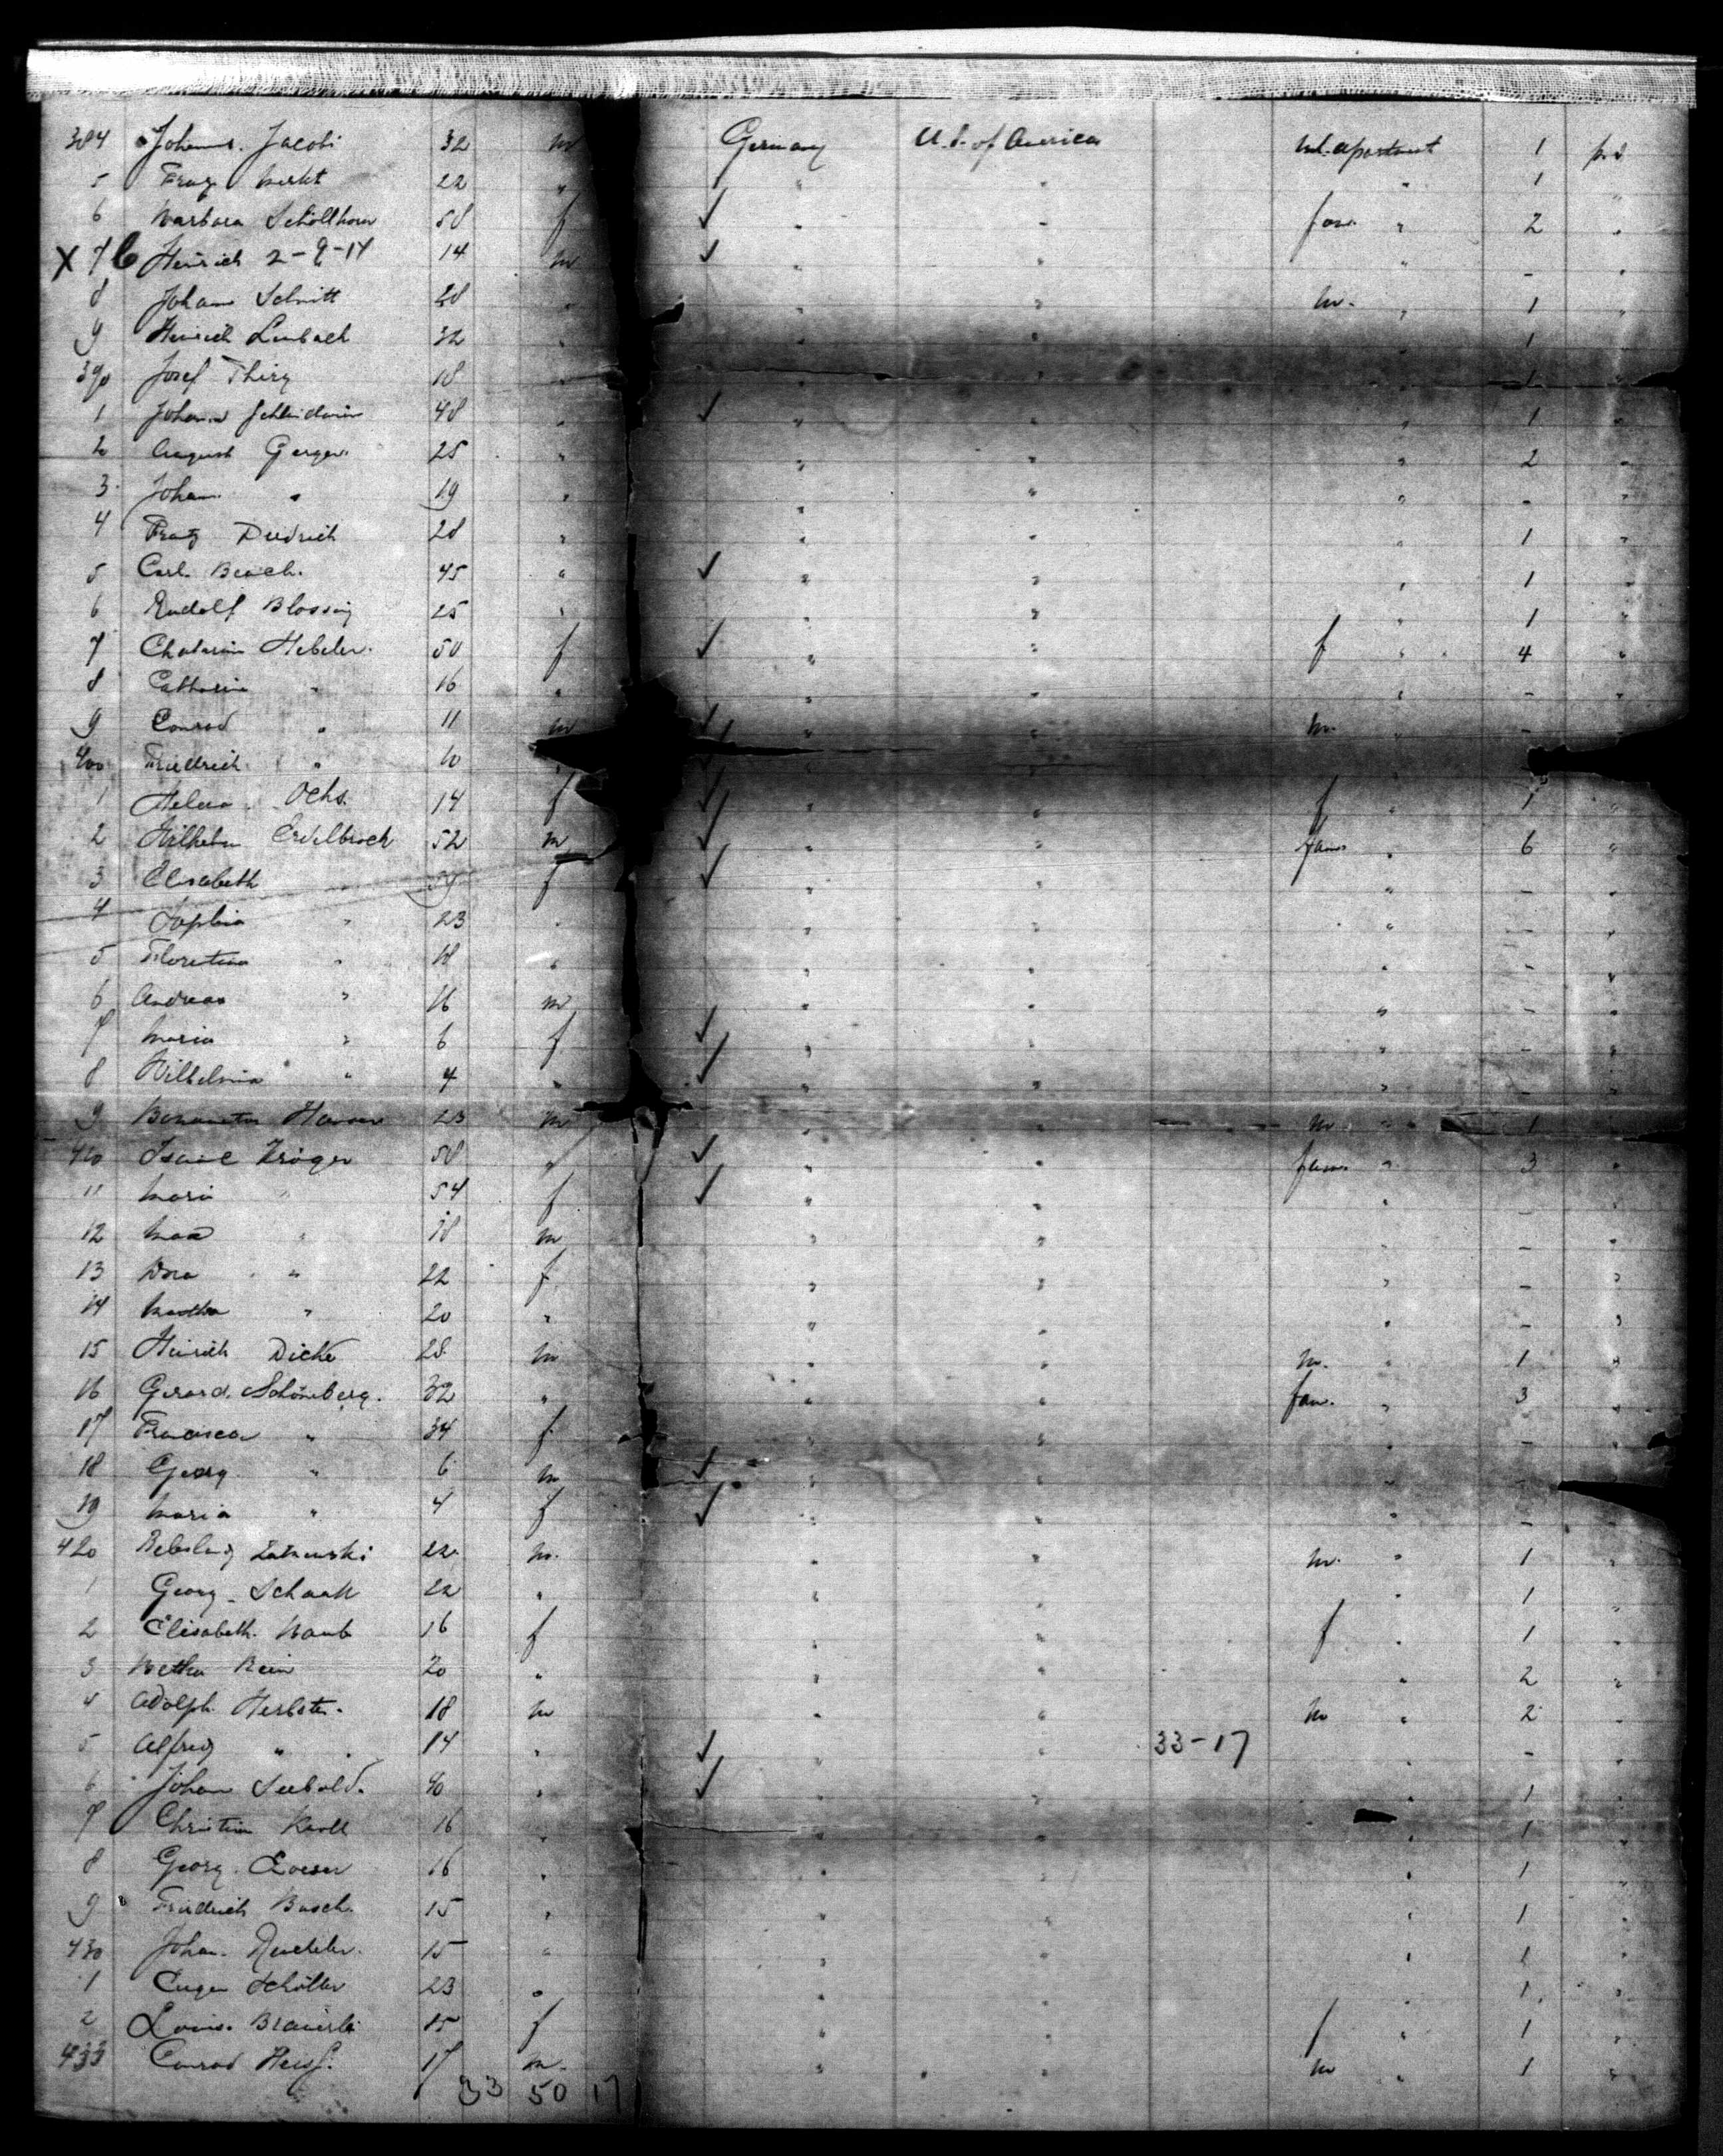 384 Johann. Jacobi 32 m Germany U.S. of America ml. apartment 1
5 Franz Merkt 22 " " " " 1 "
6 Barbara Schöllhorn 50 f ✓ " " fam. " 2 "
X 7 6 Heinrich 2-9-14 " 14 m ✓ " " " - "
8 Johann Schmitt 28 " " " m. " 1 "
9 Heinrich Limbach 32 " " " " 1 "
390 Josef Thiry 18 " " " " 1 "
1 Johann 48 " ✓ " " " 1 "
2 August Gerger 25 " " " " 2 "
3 Johan " 19 " " " " - "
4 Frantz Diedrich 28 " " " " 1 "
5 Carl Beach. 45 " ✓ " " " 1 "
6 Rudolf Blossing 25 " " " " 1 "
7 Chatarina Hebeler. 50 f ✓ " " f " 4 "
8 Catharina " 16 " " " " - "
9 Conrad " 11 m ✓ " " m. " -
400 Friedrich " 10 ✓
1 Helena Ochs. 14 f ✓ " " f " 1 "
2 Wilhelm Erdelbrock 52 m ✓ " " fam. " 6 "
3 Elisabeth " f ✓ " " " - "
4 Sophia " 23 " " " " - "
5 Florentina " 18 " " " " - "
6 Andreas " 16 m " " " - "
7 Maria " 6 f ✓ " " " - "
8 Wilhelmina " 4 " ✓ " " " - "
9 23 m " " m " 1 "
410 Isaac Kröger 58 " ✓ " " fam. " 3 "
11 Maria " 54 f ✓ " " " - "
12 Max " 18 m " " " - "
13 Dora " 22 f " " " - "
14 Martha " 20 " " " " - "
15 Heinrich Dicke 28 m " " m. " 1 "
16 Gerard. Schöneberg. 32 " " " fam. " 3 "
17 Francisca " 34 f " " " - "
18 Georg " 6 m ✓ " " " - "
19 Maria " 4 f ✓ " " " - "
420 22 m. " " m. " 1 "
1 Georg Schaak 22 " " " " 1 "
2 Elisabeth. Waub 16 f " " f " 1 "
3 Bertha Rein 20 " " " " 2 "
4 Adolph Herbster. 18 m " " m " 2 "
5 Alfred " 14 " ✓ " " 33-17 - "
6 Johan Seebold. 40 " ✓ " " " 1 "
7 Christian Knoll 16 " " " " 1 "
8 Georg 16 " " " " 1 "
9 Friedrich Busch. 15 " " " " 1 "
430 Johan. 15 " " " " 1 "
1 Eugen Schöller 23 " " " " 1 "
2 Louis. 15 f " " f " 1 "
433 Conrad Heiss. 17 m. " " m " 1 "
33 50 17